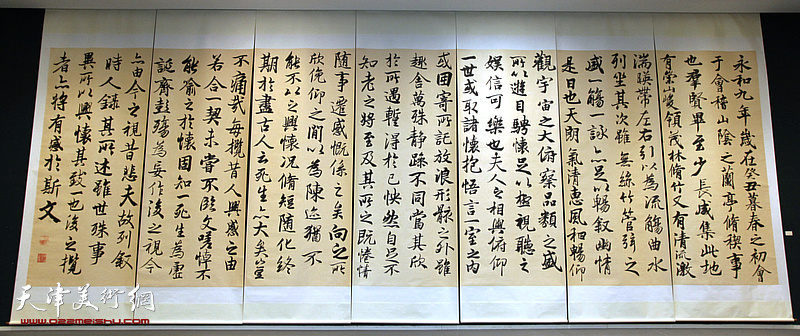 永和九年歲在癸丑暮春之初會
于會稽山陰之蘭亭脩禊事
也群賢畢至少長咸集此地
有崇山峻領茂林脩竹又有清流激
湍暎帶左右引以為流觴曲水
列坐其次雖無絲竹管弦之
盛一觴一詠亦足以暢叙幽情
是日也天朗氣清惠風和暢仰
觀宇宙之大俯察品類之盛
所以遊目騁懷足以極視聽之
娛信可樂也夫人之相與俯仰
一世或取諸懷抱悟言一室之內
或因寄所託放浪形骸之外雖
趣舍萬殊静躁不同當其欣
於所遇暫得於己怏然自足不
知老之將至及其所之既惓情
隨事遷感慨係之矣向之所
欣俛仰之間以為陳迹猶不
能不以之興懷況脩短隨化終
期於盡古人云死生亦大矣豈
不痛哉每攬昔人興感之由
若合一契未嘗不臨文嗟悼不
能喻之於懷固知一死生為虛
誕齊彭殤為妄作後之視今
亦由今之視昔悲夫故列叙
時人録其所述雖世殊事
異所以興懷其致一也後之攬
者亦將有感於斯文
天津美術網